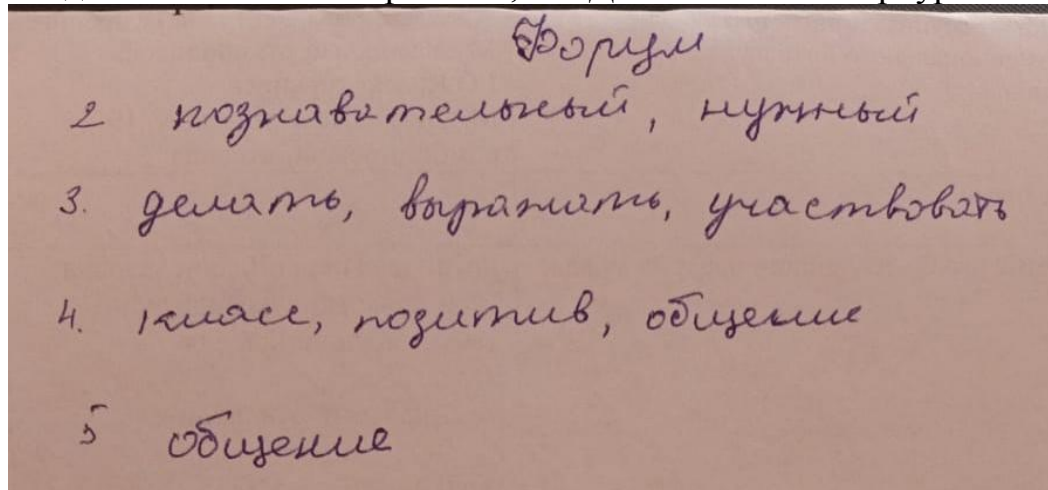 Форум
2 познавательный, нужный
3. делать, выражать, участвовать
4. класс, позитив, общение
5 общение